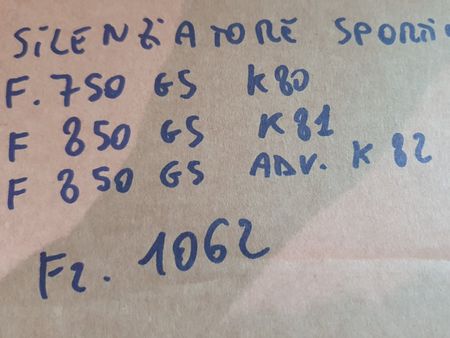 SILENZIATORE SPORTI
F. 750 GS K80
F 850 GS K81
F 850 GS ADV. K 82
Fr. 1062